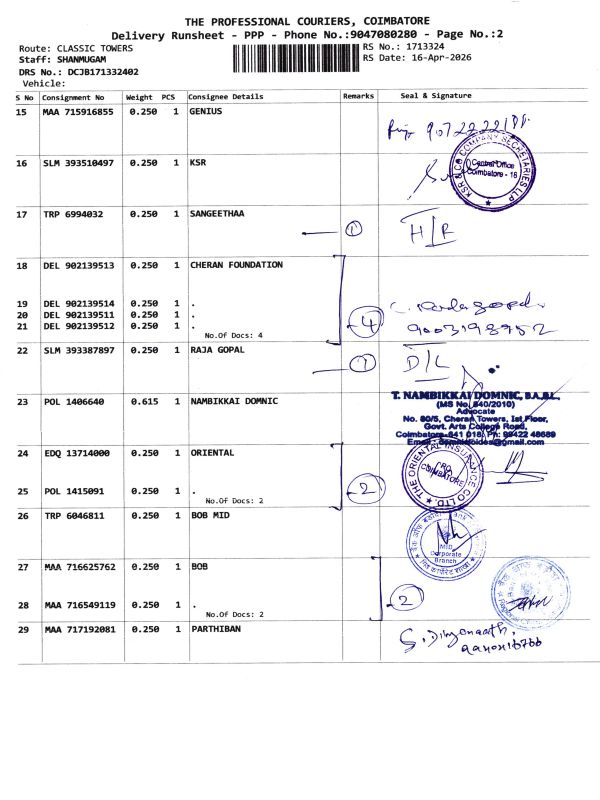 THE PROFESSIONAL COURIERS, COIMBATORE
Delivery Runsheet - PPP - Phone No.:9047080280 - Page No.:2
Route: CLASSIC TOWERS
Staff: SHANMUGAM
DRS No.: DCJB171332402
Vehicle:
RS No.: 1713324
RS Date: 16-Apr-2026
S No Consignment No Weight PCS Consignee Details Remarks Seal & Signature
15 MAA 715916855 0.250 1 GENIUS
16 SLM 393510497 0.250 1 KSR
KSR & CO COMPANY SECRETARIES LLP
Central Office
Coimbatore - 18
17 TRP 6994032 0.250 1 SANGEETHAA
1 H/R
18 DEL 902139513 0.250 1 CHERAN FOUNDATION
19 DEL 902139514 0.250 1 .
20 DEL 902139511 0.250 1 .
4
21 DEL 902139512 0.250 1 .
9003198952
No.Of Docs: 4
22 SLM 393387897 0.250 1 RAJA GOPAL
1 D/L
23 POL 1406640 0.615 1 NAMBIKKAI DOMNIC
T. NAMBIKKAI DOMNIC, B.A.,B.L.,
(MS No. 840/2010)
Advocate
No. 80/5, Cheran Towers, Ist Floor,
Govt. Arts College Road,
Coimbatore-641 018. Ph: 99422 48689
24 EDQ 13714000 0.250 1 ORIENTAL
THE ORIENTAL INSURANCE CO LTD.
RO
COIMBATORE
25 POL 1415091 0.250 1 .
2
No.Of Docs: 2
26 TRP 6046811 0.250 1 BOB MID
Corporate
Branch
27 MAA 716625762 0.250 1 BOB
28 MAA 716549119 0.250 1 .
2
No.Of Docs: 2
29 MAA 717192081 0.250 1 PARTHIBAN